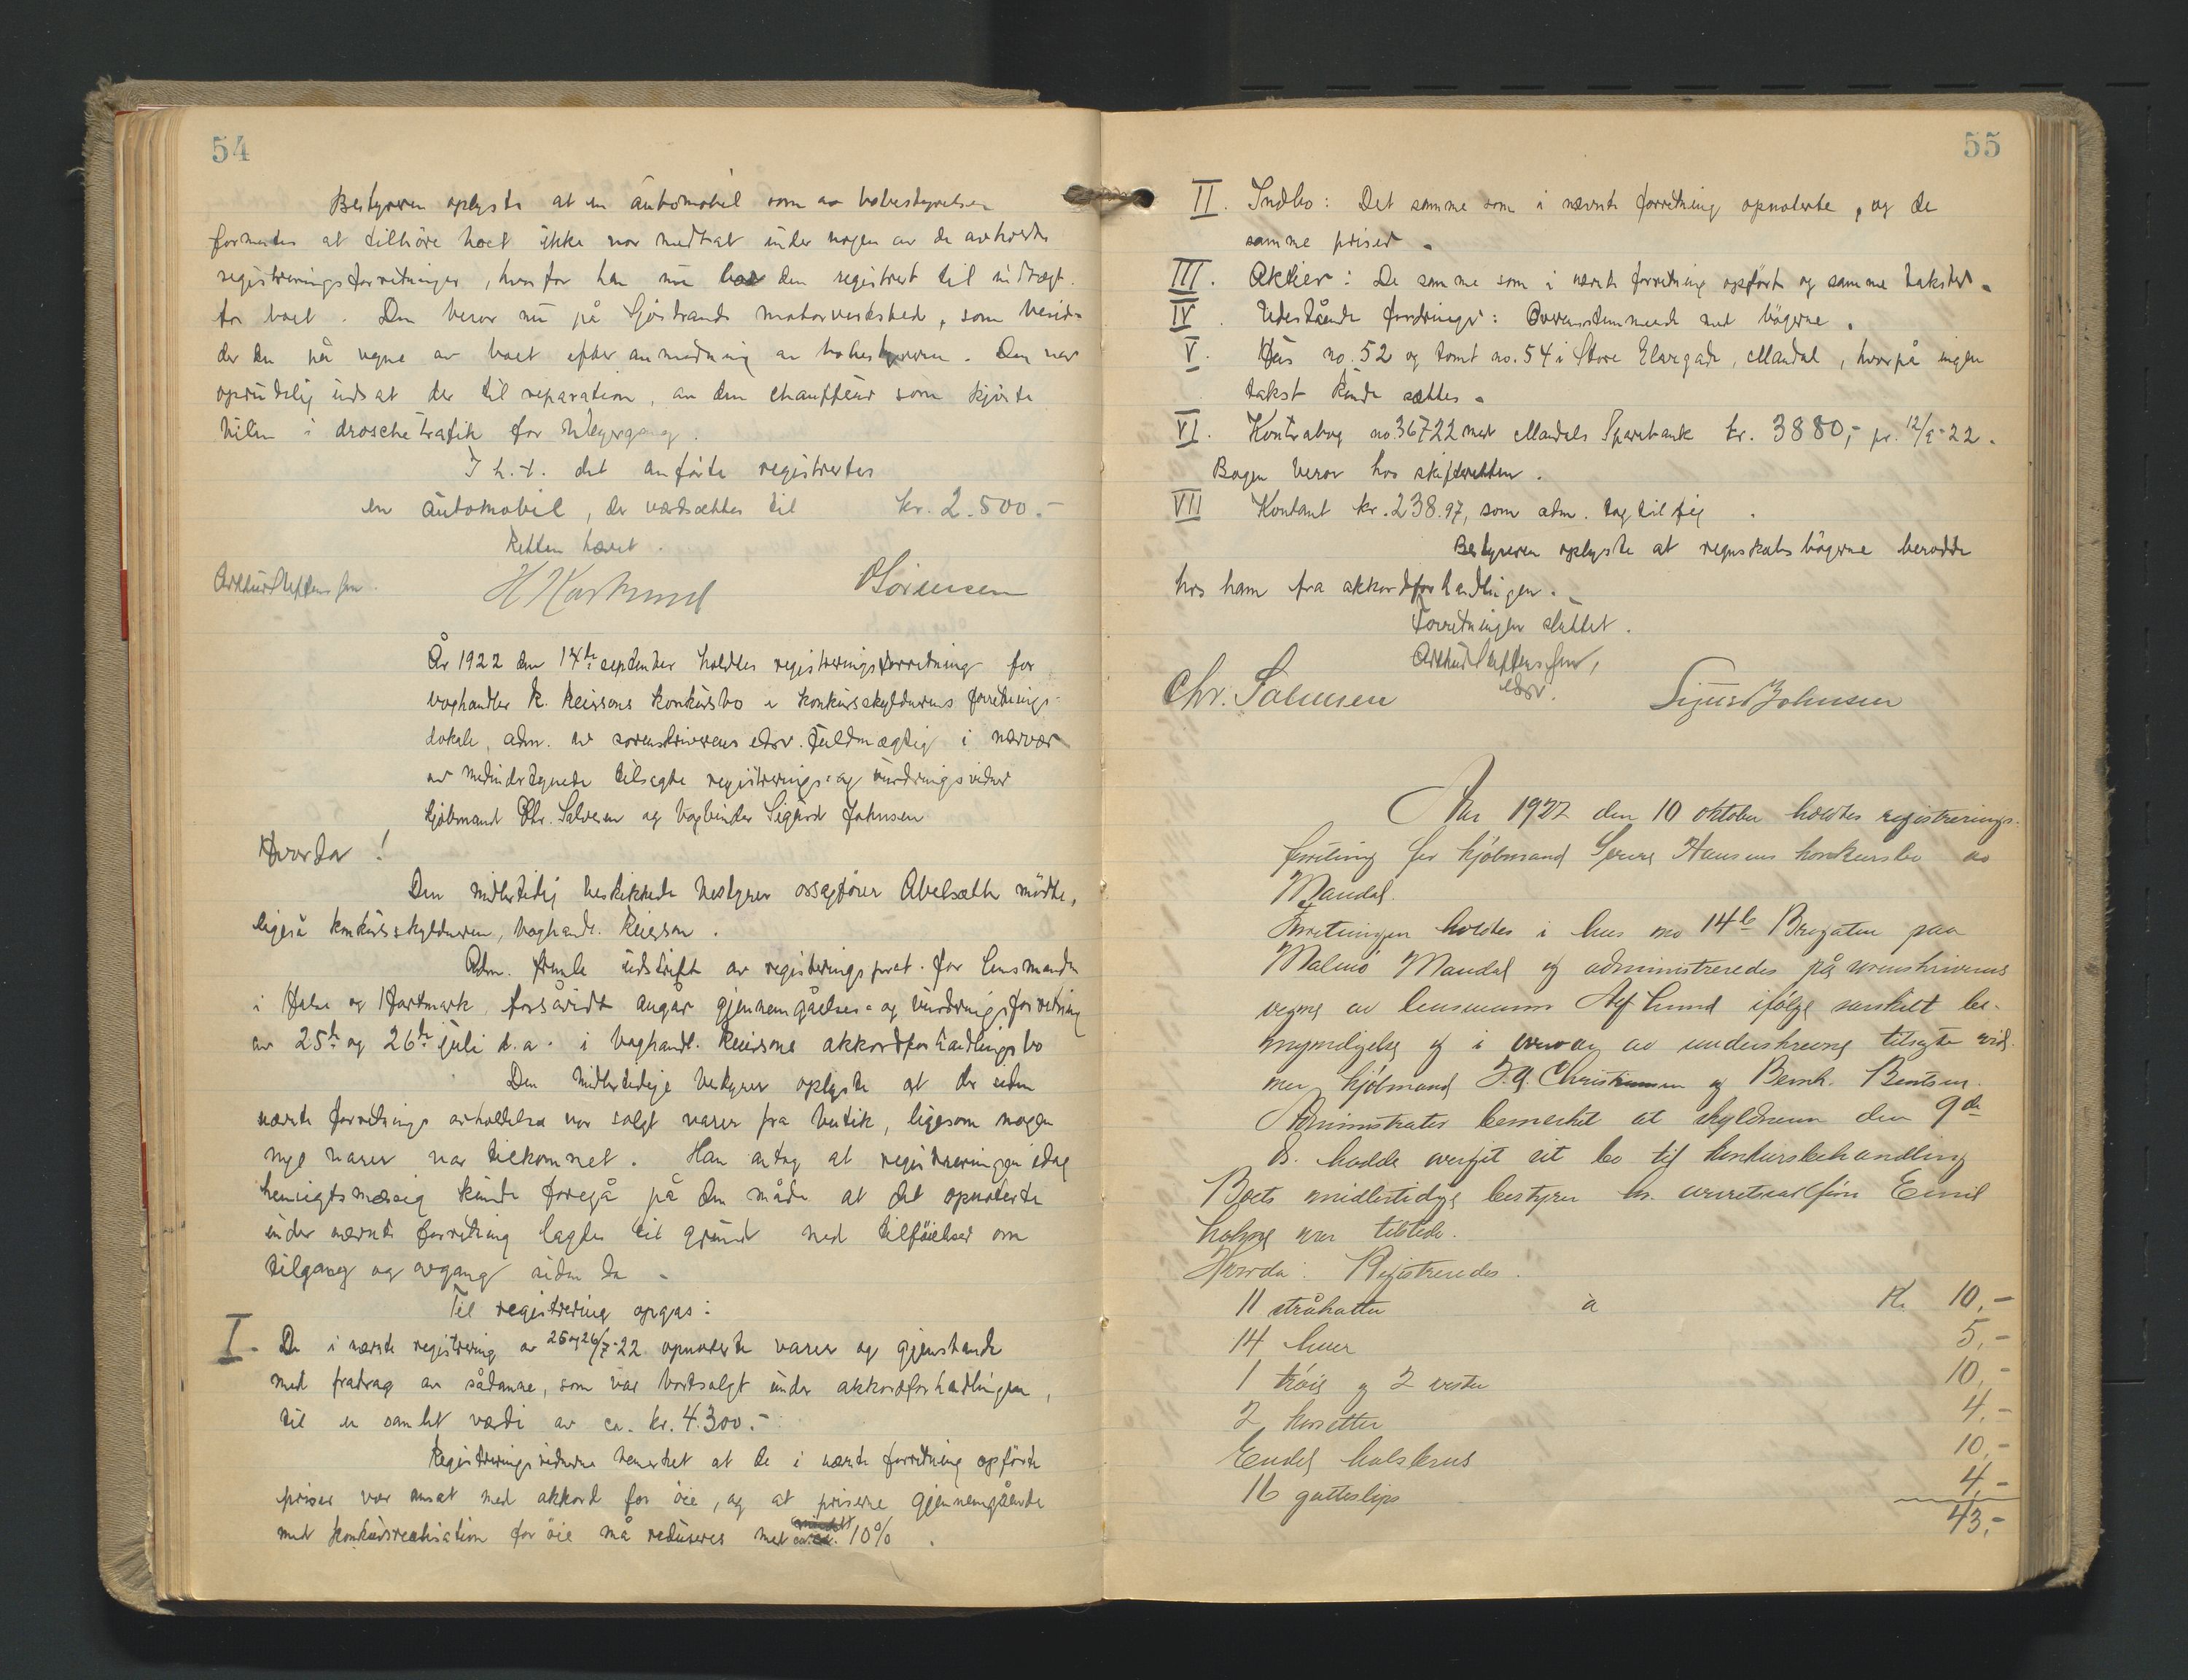 54
Bestyreren oplyste at en automobil som av bobestyrelsen
formentes at tilhöre boet ikke var medtat under nogen av de avholdte
registreringsforretninger, hvorfor han nu bad den registrert til indtægt
for boet. Den beror nu på Sjöstrands motorverksted, som besid-
der den på vegne av boet efter anmodning av bobestyreren. Den var
oprindelig indsat der til reparation, av den chauffeur som kjörte
bilen i droschetrafik for
I h.t. det anförte registrertes
en automobil, der værdsættes til kr. 2.500.-
Retten hævet.
H Hartmand
Sörensen
År 1922 den 14de september holdtes registreringsforretning for
boghandler K. Reiersons konkursbo i konkursskyldnerens forretnings-
lokale, adm. av sorenskriverens edsv. fuldmægtig i nærvær
av medundertegnede tilsagte registrerings- og vurderingsvidner
kjöbmand Chr. Salvesen og bogbinder Sigurd Johnsen
Hvorda!
Den midlertidig beskikkede bestyrer ossagförer Abelsæth mödte,
ligeså konkursskyldneren, boghandl. Reierson.
Adm. fremla utskrift av registreringsprot. for lensmanden
i Halse og Hartmark, forsåvidt angår gjennemgåelses- og vurderingsforretning
av 25de og 26de juli d.a. i boghandl. Reiersons akkordforhandlingsbo
Den midlertidige bestyrer oplyste at der siden
nævnte forretnings avholdelse var solgt varer fra butik, ligesom nogen
nye varer var tilkommet. Han antog at registreringen idag
hensigtsmæssig kunde foregå på den måde at det opnoterte
under nævnte forretning lagdes til grund med tilföielser om
tilgang og avgang siden da.
Til registrering opgas:
I. De i nævnte registrering av 25 og 26/7-22 opnoterte varer og gjenstande
med fradrag av sådanne, som var bortsolgt under akkordforhandlingen,
til en samlet værdi av ca. kr. 4300.-
Registreringsvidnerne bemerket at de i nævnte forretning opförte
priser var ansat med akkord for öie, og at priserne gjennemgående
med konkursrealisation for öie må reduseres med 10%.
55
II. Indbo: Det samme som i nævnte forretning opnoterte, og de
samme priser.
III. Aktier: De samme som i nævnte forretning opfört og samme takster.
IV. Utestående fordringer: Overensstemmende med bögerne.
V. Hus no. 52 og tomt no. 54 i Store Elvegade, Mandal, hvorpå ingen
takst kunde sættes.
VI. Kontrabog no 36722 med Mandals Sparebank kr. 3880,- pr. 12/9-22.
Bogen beror hos skifteretten.
VII Kontant kr. 238.97, som adm. tog til sig.
Bestyreren oplyste at regnskabsbögerne berodde
hos ham fra akkordforhandlingen.
Forretningen sluttet.
edsv.
Chr. Salvesen
Sigurd Johnsen
Aar 1922 den 10 oktober holdtes registrerings-
forretning for kjöbmand Hansens konkursbo av
Mandal.
Forretningen holdtes i hus no 14b Brogaten paa
Malmö Mandal og administreredes på sorenskriverens
vegne av lensmann Alf Lund ifölge særskilt be-
myndigelse og i overvær av underskrevne tilsagte vid-
ner kjöbmand Christensen og Bernh. Bentsen.
Administrator bemerket at skyldneren den 9de
ds. hadde overgit sit bo til konkursbehandling
Boets midlertidige bestyrer hr. Emil
var tilstede.
Hvorda: Registreredes.
11 stråhatter a Kr. 10,-
14 huer 5,-
1 tröie og 2 vester 10,-
2 korsetter 4,-
Endel halskrus 10,-
16 gutteslips 4,-
43,-